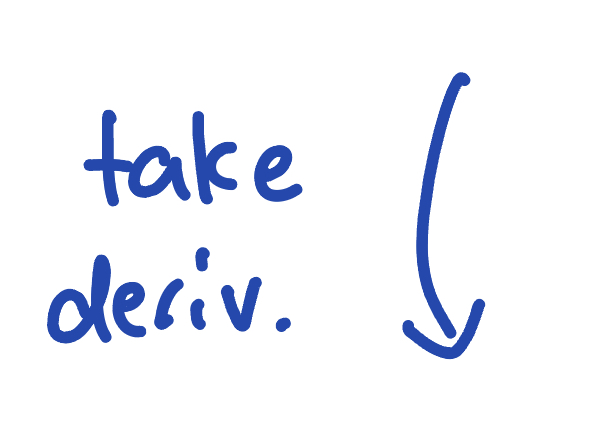 take
deriv.